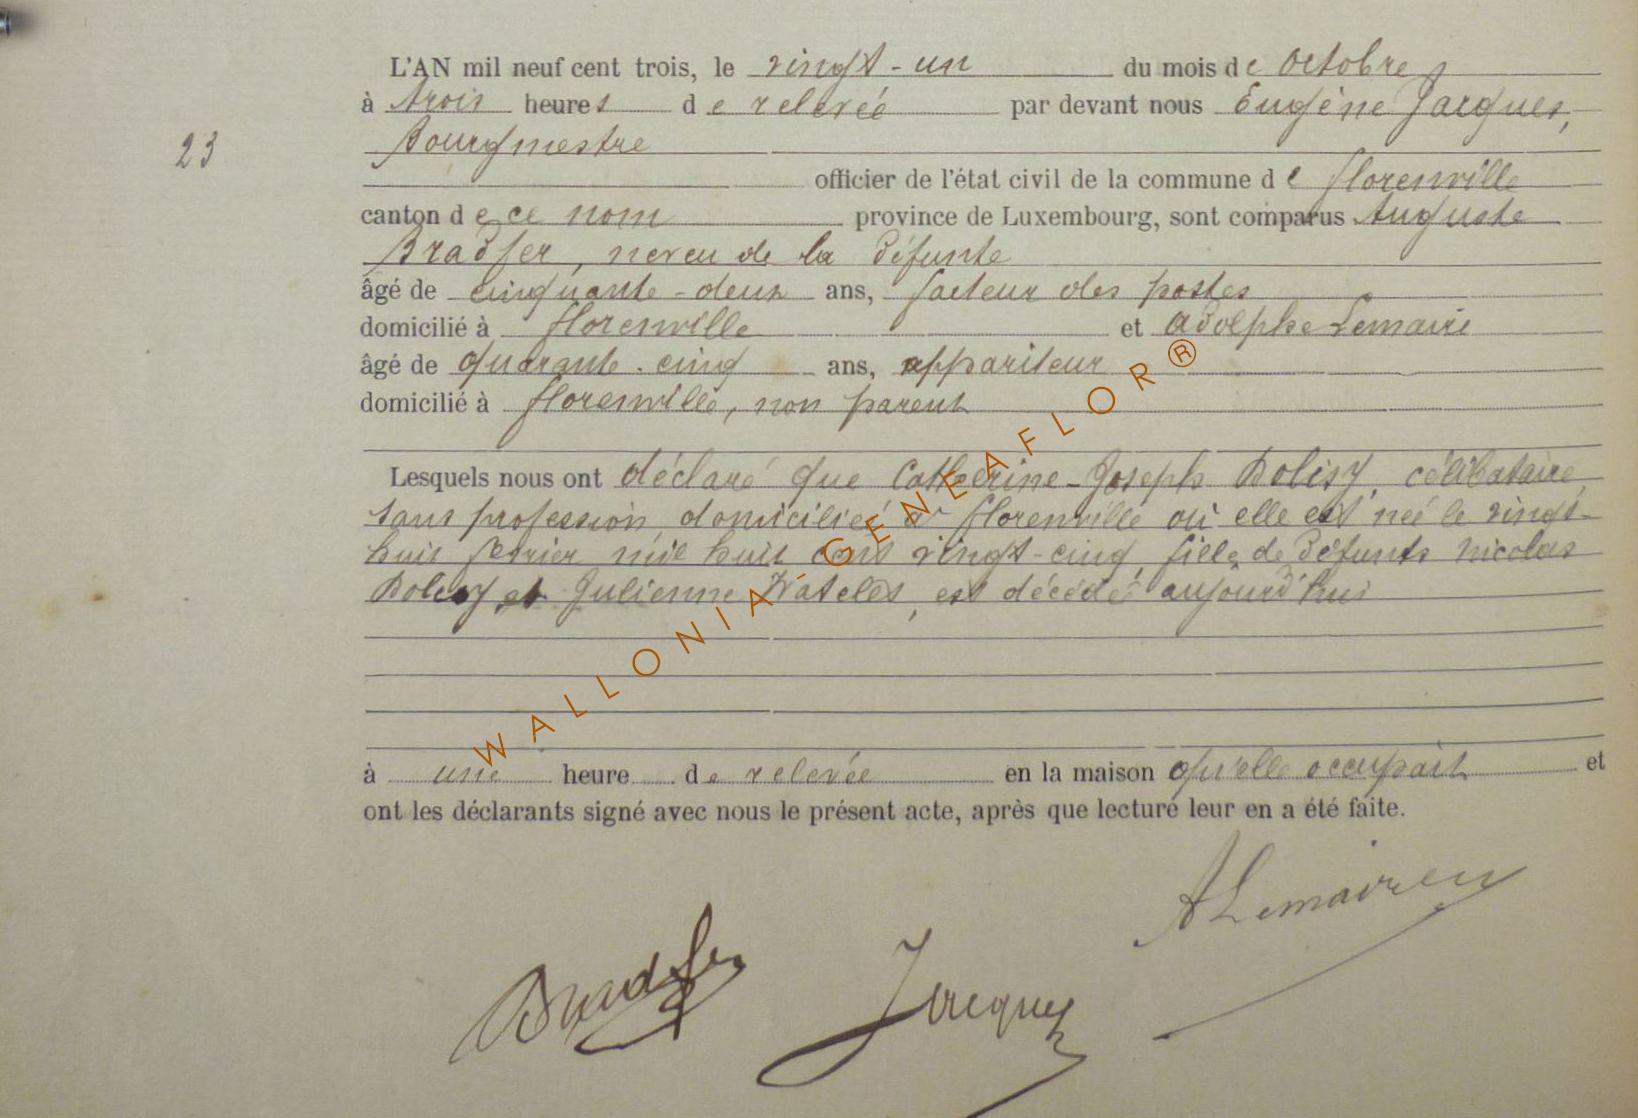 L'AN mil neuf cent trois, le vingt-un du mois de Octobre
à trois heures de relevée par devant nous Eugène Jacques,
23
Bourgmestre
officier de l'état civil de la commune de florenville
canton de ce nom province de Luxembourg, sont comparus Auguste
Bradfer, neveu de la défunte
âgé de cinquante-deux ans, facteur des postes
domicilié à florenville et Adolphe Lemaire
âgé de quarante-cinq ans, appariteur
domicilié à florenville, non parent
Lesquels nous ont déclaré que Catherine-Joseph Dolisy, célibataire,
sans profession, domiciliée à florenville où elle est née le vingt-
huit février mil huit cent vingt-cinq, fille de défunts Nicolas
Dolisy et Julienne Watelet, est décédée aujourd'hui
à une heure de relevée en la maison qu'elle occupait et
ont les déclarants signé avec nous le présent acte, après que lecture leur en a été faite.
ALemaire
Bradfer
Jacques
WALLONIA-GENEAFLOR®